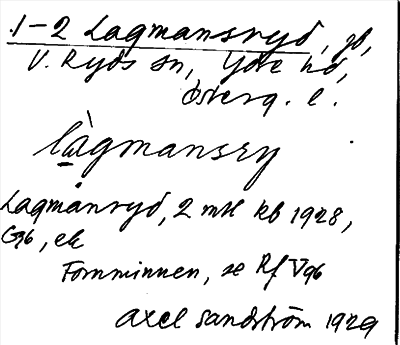 1-2 Lagmansryd, gd,
V. Ryds sn, Ydre hd,
Österg. l.
làgmansry
Lagmansryd, 2 mtl kb 1928,
G96, ek
Fornminnen, se Rf V96
Axel Sandström 1929